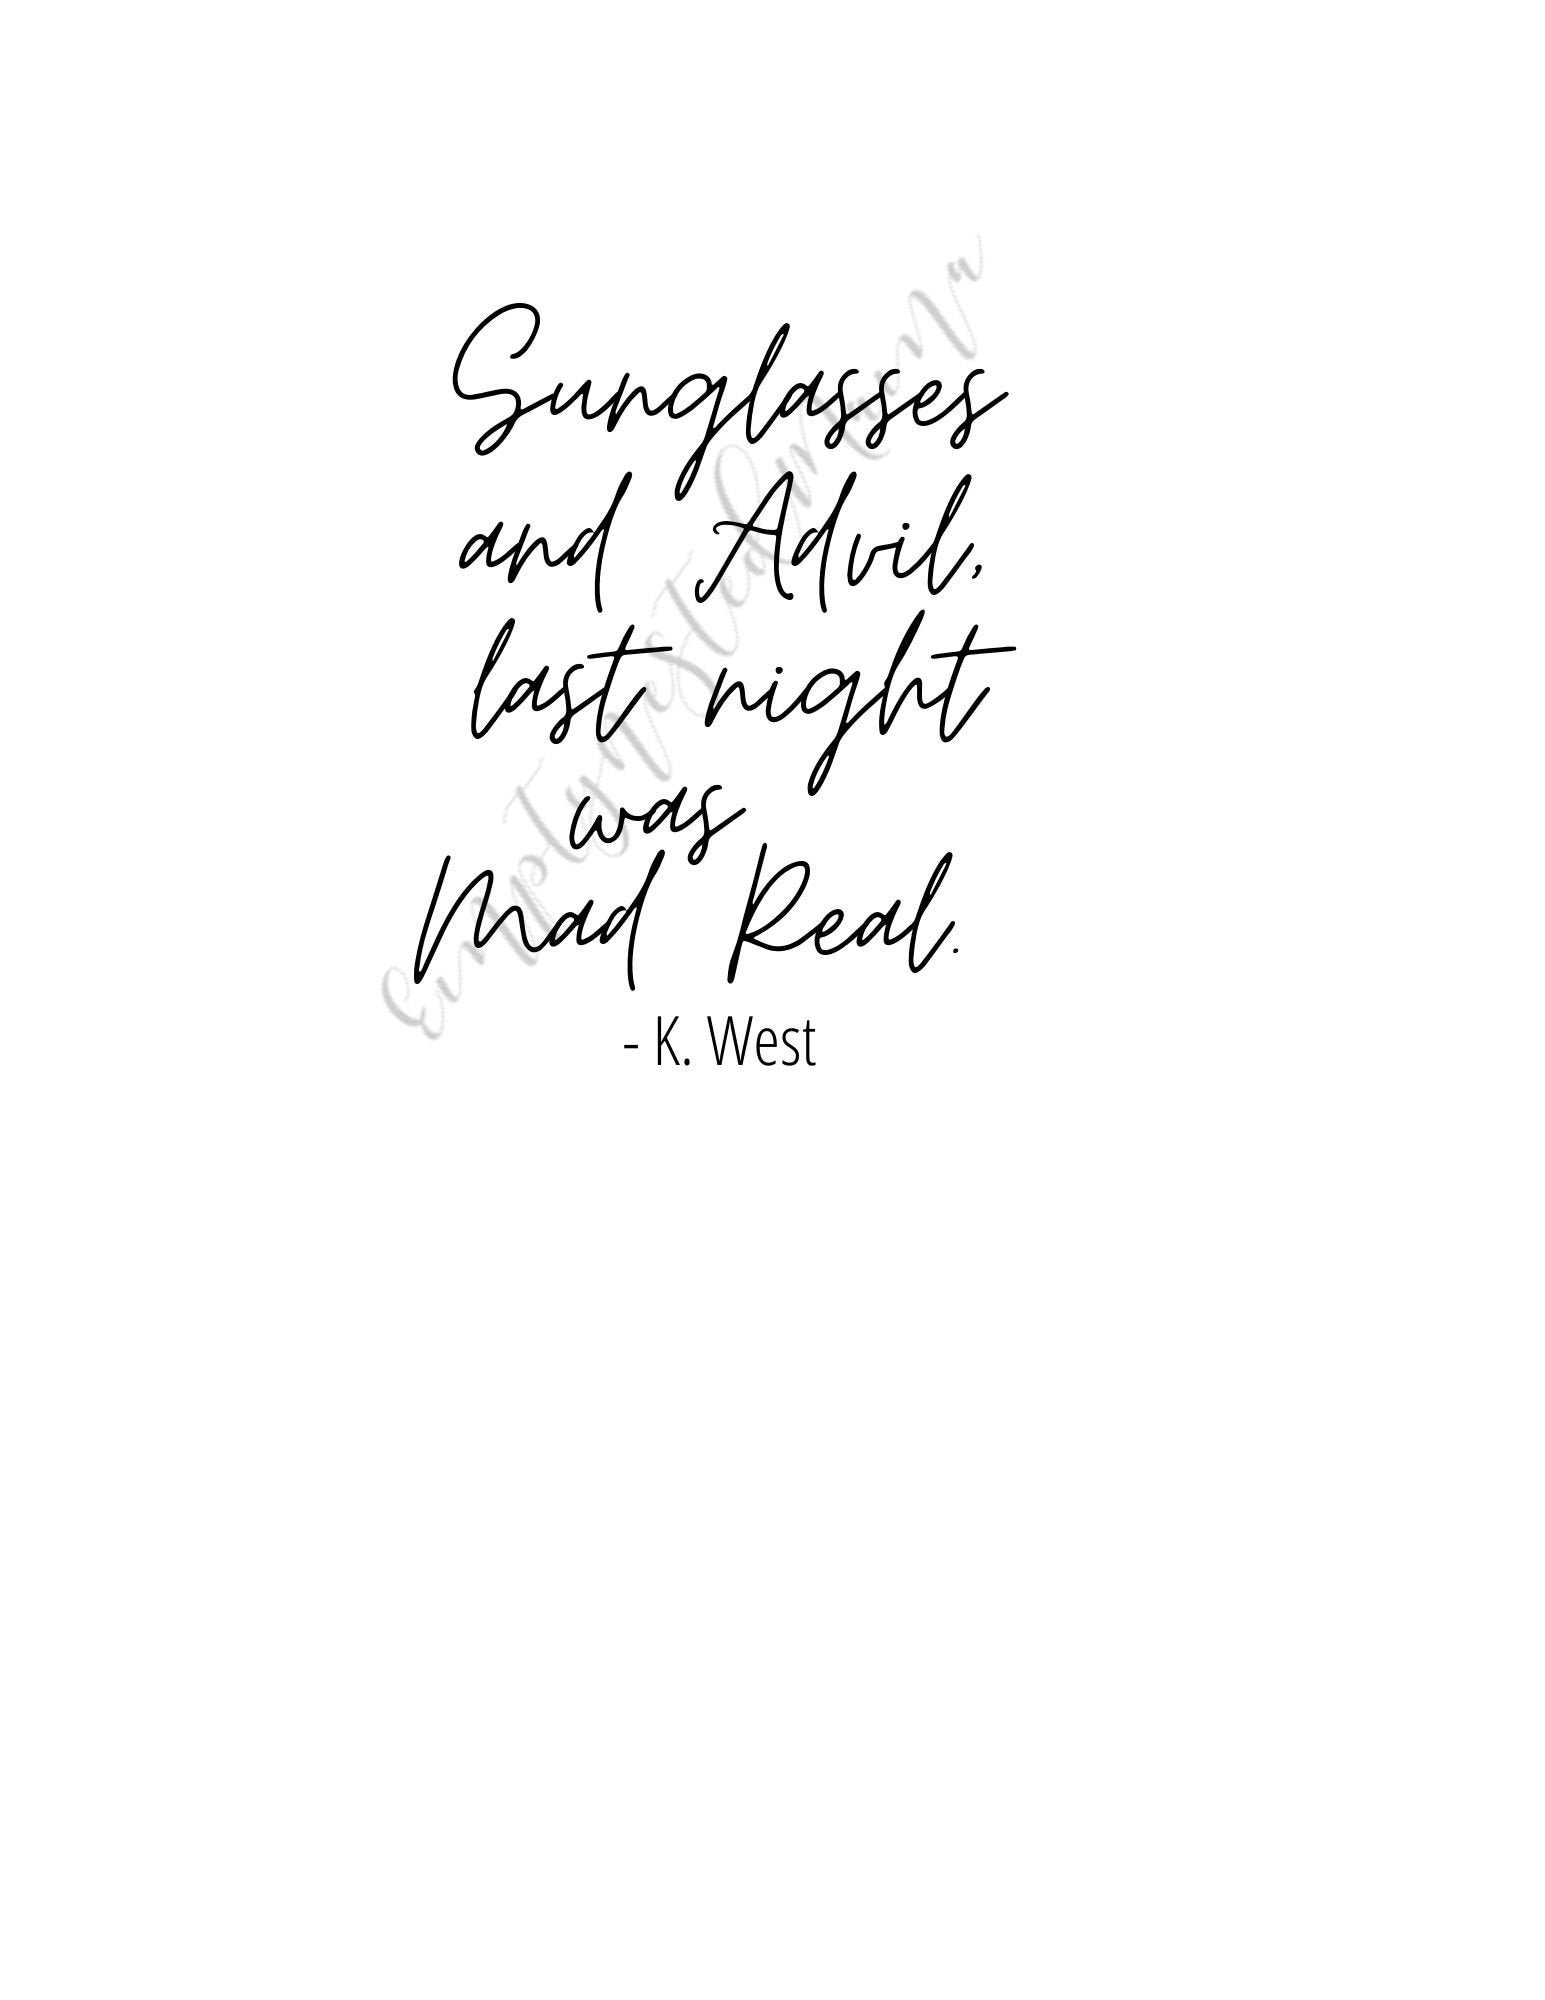 Sunglasses
and Advil,
last night
was
Mad Real.
- K. West